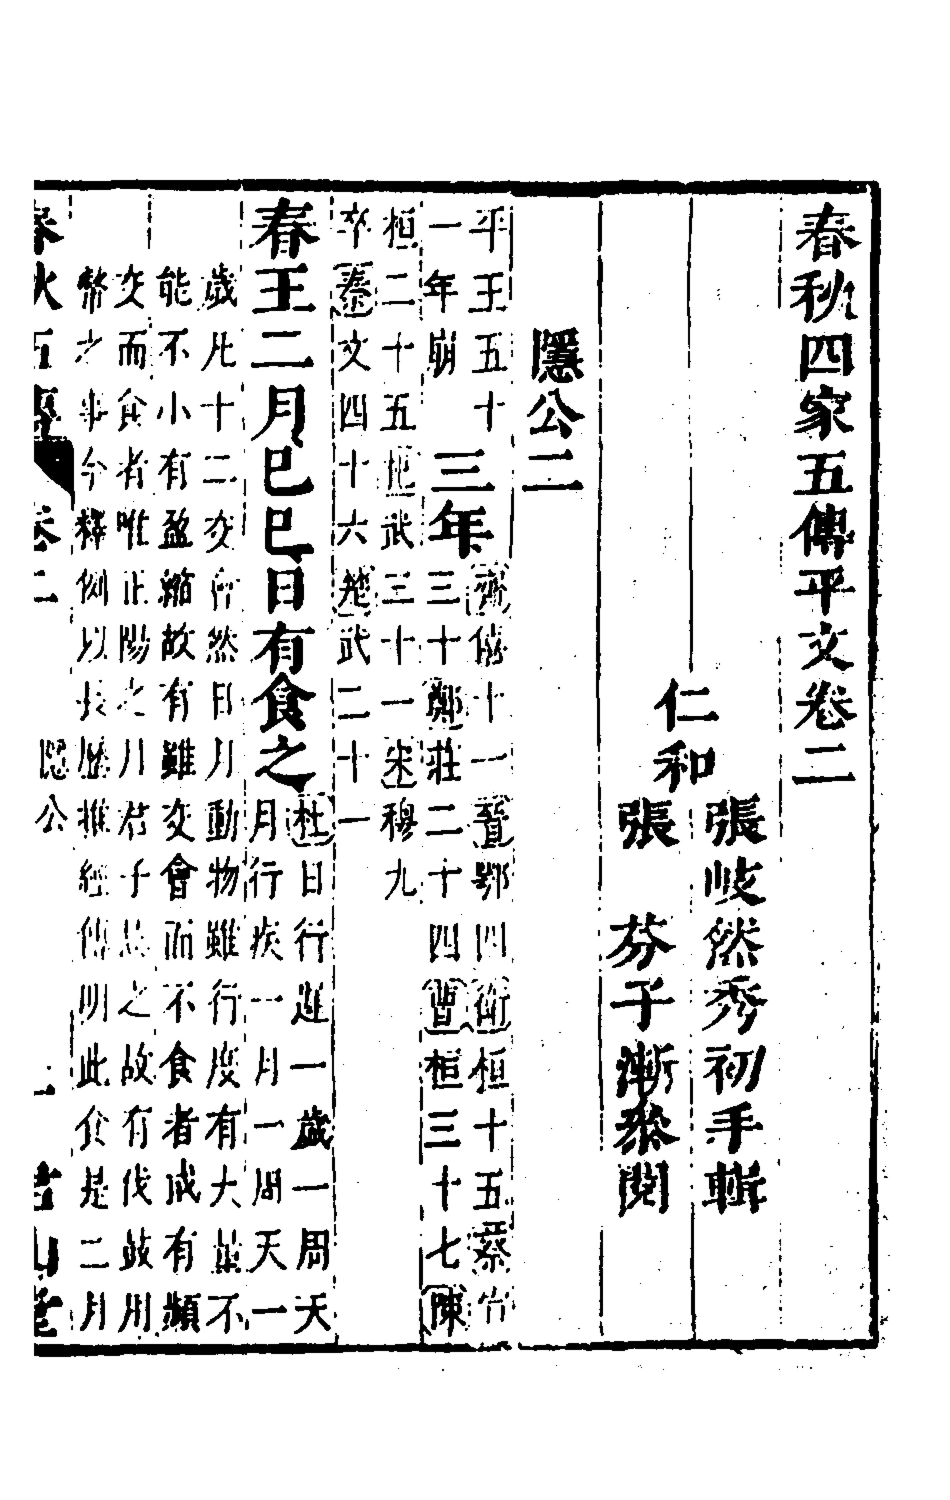 春秋四家五傳平文卷二
仁和
張岐然秀初手輯
張芬子漸叅閱
隱公二
平王五十
一年崩
三年
齊僖十一晉鄂四衛桓十五蔡宣
三十鄭莊二十四曹桓三十七陳
桓二十五杞武三十一宋穆九
卒秦文四十六楚武二十一
春王二月己巳日有食之
杜日行遲一歲一周天
月行疾一月一周天一
歲凡十二交會然日月動物雖行度有大量不
能不小有盈縮故有雖交會而不食者或有頻
交而食者唯正陽之月君子忌之故有伐鼓用
幣之事今釋例以長歷推經傳明此食是二月
春秋五傳
卷二
隱公
一
山堂